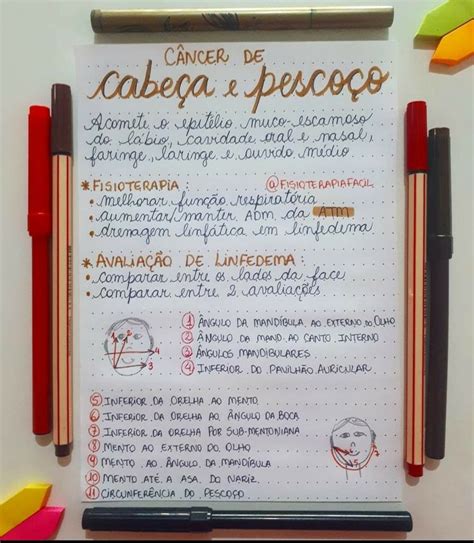 CÂNCER DE
cabeça e pescoço
Acomete o epitélio muco-escamoso
do lábio, cavidade oral e nasal,
faringe, laringe e ouvido médio.
* FISIOTERAPIA: @FISIOTERAPIAFACIL
• melhorar função respiratória
• aumentar/manter ADM da ATM
• drenagem linfática em linfedema
* AVALIAÇÃO DE LINFEDEMA:
• comparar entre os lados da face
• comparar entre 2 avaliações
1 ÂNGULO DA MANDÍBULA AO EXTERNO DO OLHO
2 ÂNGULO DA MAND. AO CANTO INTERNO
3 ÂNGULOS MANDIBULARES
4 INFERIOR DO PAVILHÃO AURICULAR
5 INFERIOR DA ORELHA AO MENTO
6 INFERIOR DA ORELHA AO ÂNGULO DA BOCA
7 INFERIOR DA ORELHA POR SUB-MENTONIANA
8 MENTO AO EXTERNO DO OLHO
9 MENTO AO ÂNGULO DA MANDÍBULA
10 MENTO ATÉ A ASA DO NARIZ
11 CIRCUNFERÊNCIA DO PESCOÇO